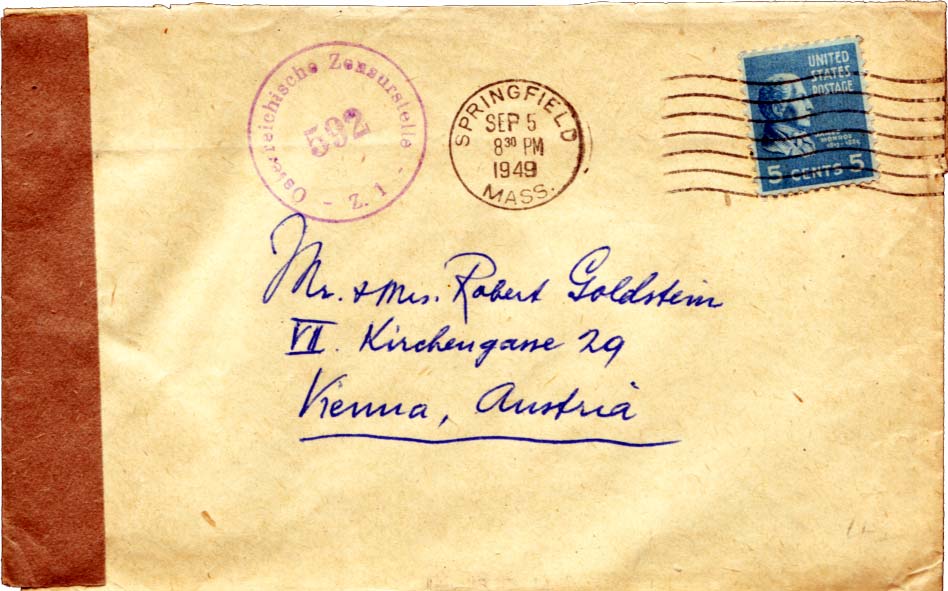 Österreichische Zensurstelle
592
- Z. 1 -
SPRINGFIELD
SEP 5
8 30 PM
1949
MASS.
UNITED
STATES
POSTAGE
JAMES
MONROE
5 CENTS 5
Mr. & Mrs. Robert Goldstein
VII. Kirchengasse 29
Vienna, Austria